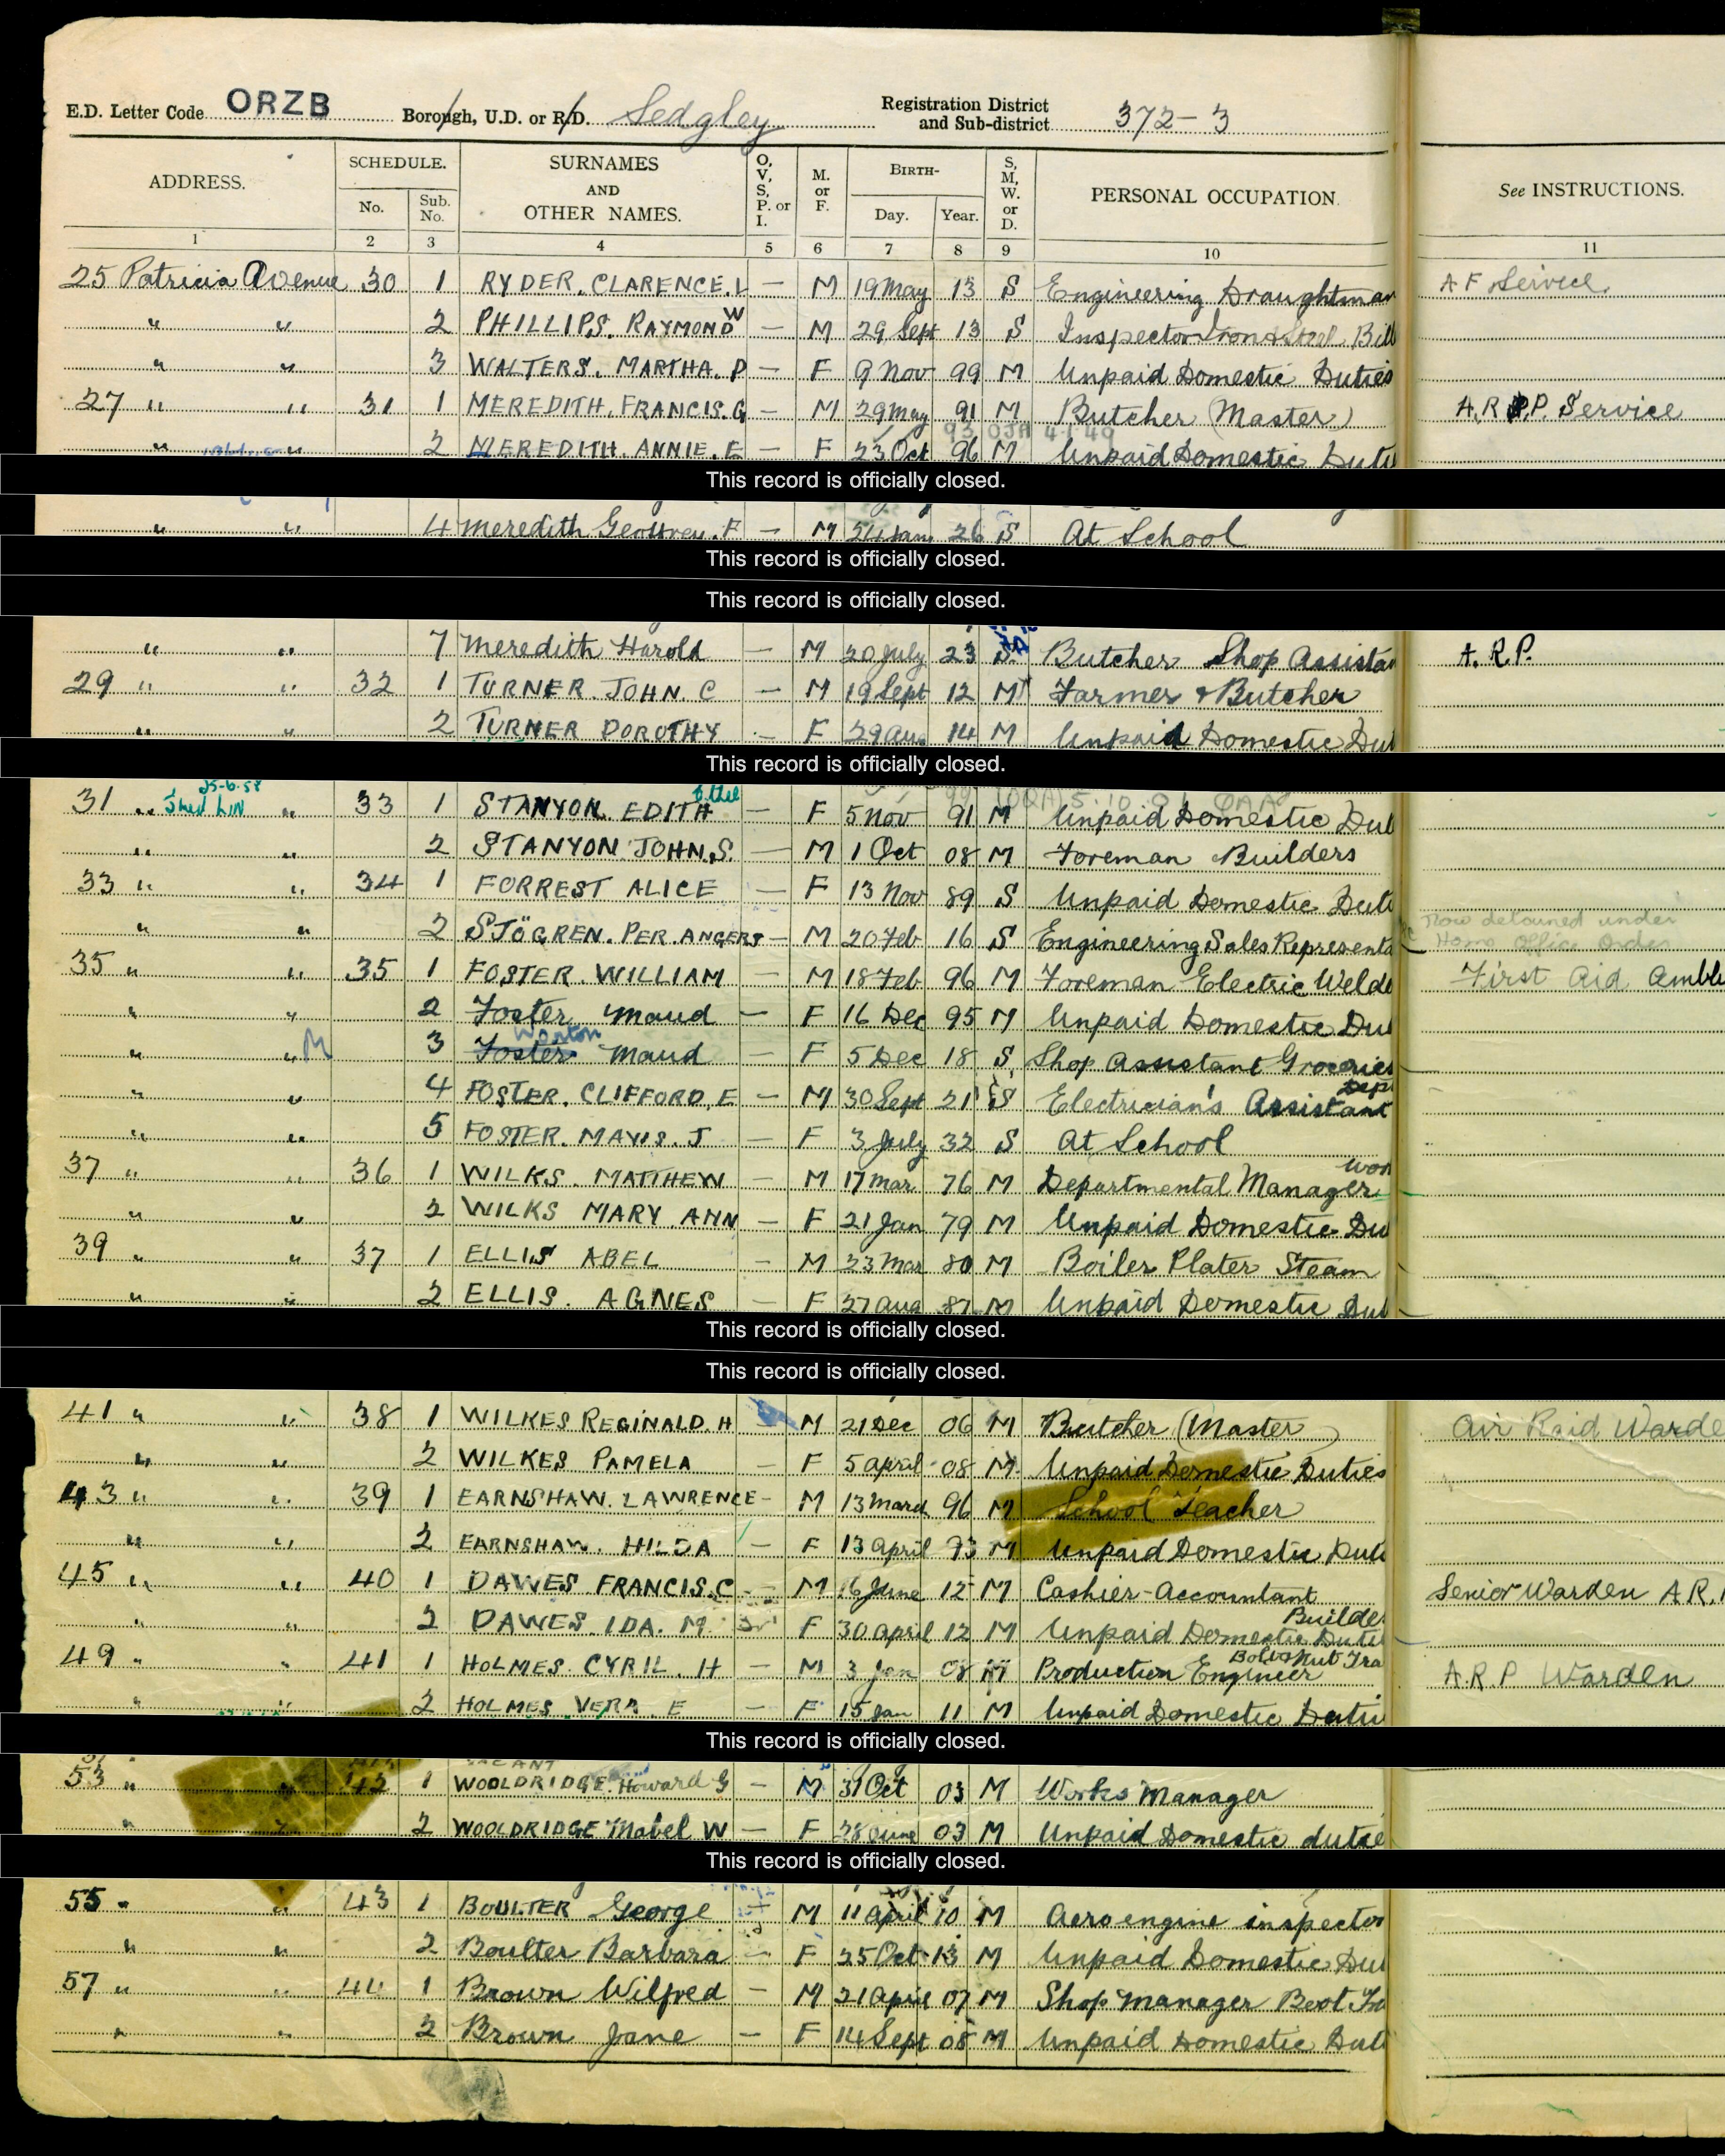 E.D. Letter Code ORZB Borough, U.D. or R.D. Sedgley Registration District and Sub-district 372-3
ADDRESS. SCHEDULE. No. Sub. No. SURNAMES AND OTHER NAMES. O, V, S, P. or I. M. or F. BIRTH- Day. Year. S, M, W. or D. PERSONAL OCCUPATION. See INSTRUCTIONS.
1 2 3 4 5 6 7 8 9 10 11
25 Patricia Avenue 30 1 RYDER. CLARENCE. L — M 19 May 13 S Engineering Draughtman A F Service.
" " 2 PHILLIPS. RAYMOND W — M 29 Sept 13 S Inspector Iron & Steel Bill
" " 3 WALTERS. MARTHA. P — F 9 Nov 99 M Unpaid Domestic Duties
27 " " 31 1 MEREDITH. FRANCIS. G — M 29 May 91 M Butcher (Master) A.R.P. Service
93 OJA 4.1.49
" " 2 MEREDITH. ANNIE. E — F 23 Oct 96 M Unpaid Domestic Duti
This record is officially closed.
" " 4 Meredith Geoffrey. F — M 24 Jan 26 S At School
This record is officially closed.
This record is officially closed.
" " 7 Meredith Harold — M 20 July 23 S. Butcher Shop Assistan A.R.P.
29 " " 32 1 TURNER JOHN. C — M 19 Sept 12 M Farmer & Butcher
" " 2 TURNER DOROTHY — F 29 Aug 14 M Unpaid Domestic Dut
This record is officially closed.
25-6-58
31 " " 33 1 STANYON. EDITH Ethel — F 5 Nov 91 M Unpaid Domestic Dut
" " 2 STANYON JOHN. S. — M 1 Oct 08 M Foreman Builders
33 " " 34 1 FORREST ALICE — F 13 Nov 89 S Unpaid Domestic Duti
" " 2 SJÖGREN. PER ANGERS — M 20 Feb 16 S Engineering Sales Representa Now detained under Home Office Order
35 " " 35 1 FOSTER. WILLIAM — M 18 Feb 96 M Foreman Electric Welde First Aid Ambl
" " 2 Foster Maud — F 16 Dec 95 M Unpaid Domestic Dut
Worton
" " M 3 Foster Maud — F 5 Dec 18 S Shop Assistant Groceries Dept
" " 4 FOSTER. CLIFFORD, E — M 30 Sept 21 S Electrician's Assistant
" " 5 FOSTER. MAVIS. J — F 3 July 32 S At School
37 " " 36 1 WILKS. MATTHEW — M 17 Mar 76 M Departmental Manager Wor
" " 2 WILKS MARY ANN — F 21 Jan 79 M Unpaid Domestic Du
39 " " 37 1 ELLIS ABEL — M 23 Mar 80 M Boiler Plater Steam
" " 2 ELLIS. AGNES — F 27 Aug 87 M Unpaid Domestic Dut
This record is officially closed.
This record is officially closed.
41 " " 38 1 WILKES REGINALD. H — M 21 Dec 06 M Butcher (Master) Air Raid Warde
" " 2 WILKES PAMELA — F 5 April 08 M Unpaid Domestic Duties
43 " " 39 1 EARNSHAW. LAWRENCE — M 13 March 96 M School Teacher
" " 2 EARNSHAW. HILDA — F 13 April 93 M Unpaid Domestic Duti
45 " " 40 1 DAWES FRANCIS. C — M 16 June 12 M Cashier-Accountant Builde Senior Warden A.R.
" " 2 DAWES. IDA. M F 30 April 12 M Unpaid Domestic Duti
49 " " 41 1 HOLMES. CYRIL. H — M 3 Jan 08 M Production Engineer Bolt & Nut Tra A.R.P Warden
" " 2 HOLMES VERA. E — F 15 Jan 11 M Unpaid Domestic Dutie
This record is officially closed.
VACANT
53 " " 42 1 WOOLDRIDGE. Howard G — M 31 Oct 03 M Works Manager
" " 2 WOOLDRIDGE Mabel W — F 28 June 03 M Unpaid Domestic dutie
This record is officially closed.
55 " " 43 1 BOULTER George M 11 April 10 M Aero engine inspector
" " 2 Boulter Barbara — F 25 Oct 13 M Unpaid Domestic Dut
57 " " 44 1 Brown Wilfred — M 21 April 07 M Shop Manager Boot Tra
" " 2 Brown Jane — F 14 Sept 08 M Unpaid Domestic Dut